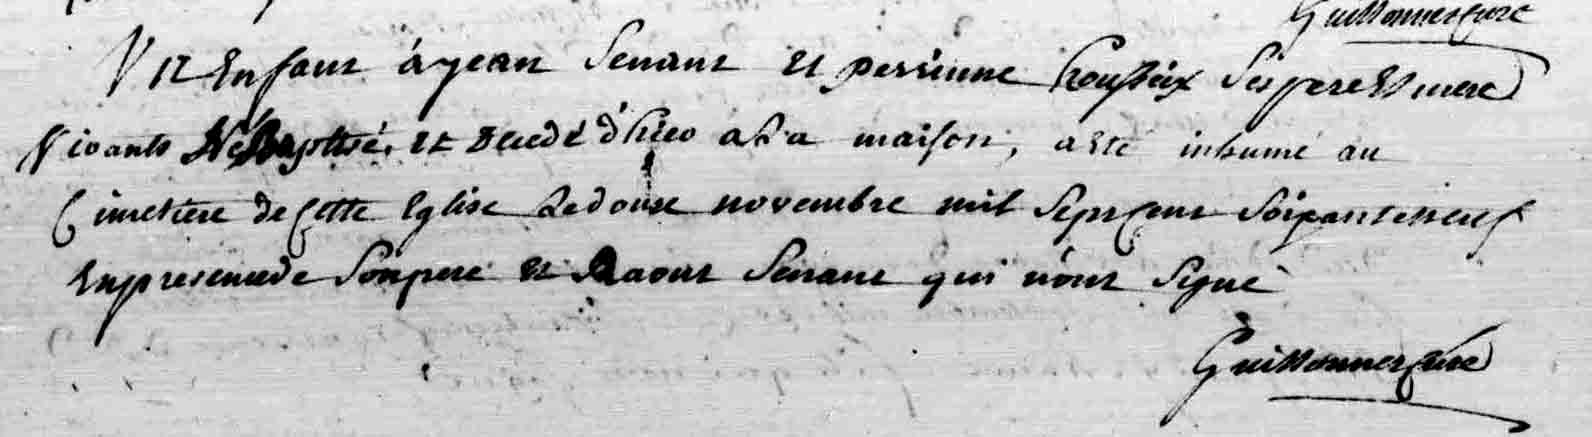 Guillonnet Curé
Vn Enfant à jean Senant et perrinne Ses pere Et mere
Vivants Né Baptisé, et decedé d'hier a La maison, a Eté inhumé au
Cimetiere de Cette Eglise Le douse novembre mil Sept Cent Soixante neuf
En presence de Son pere et Raout Senant qui n'ont Signé
Guillonnet Curé